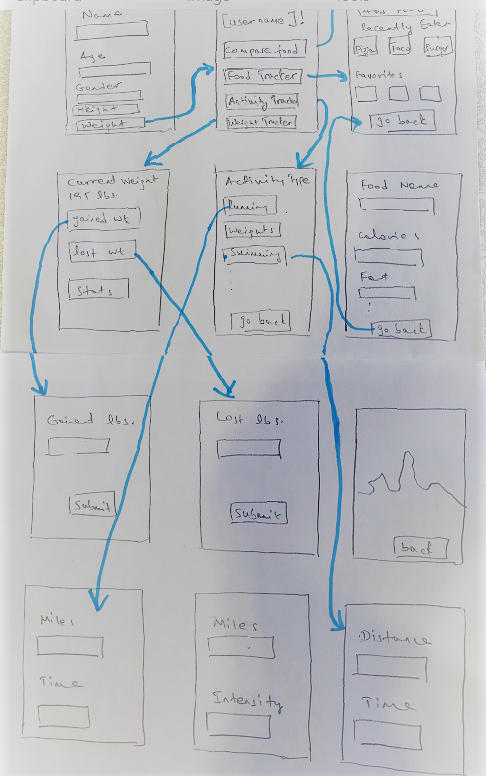 Name
Age
Gender
Height
Weight
[username]!
Compare food
Food Tracker
Activity Tracker
Weight Tracker
Recently Eaten
Pizza
Taco
Burger
Favorites
go back
Current Weight
195 lbs.
gained wt
lost wt
Stats
Activity Type
Running
Weights
Swimming
go back
Food Name
Calories
Fat
go back
Gained lbs.
Submit
Lost lbs.
Submit
back
Miles
Time
Miles
Intensity
Distance
Time